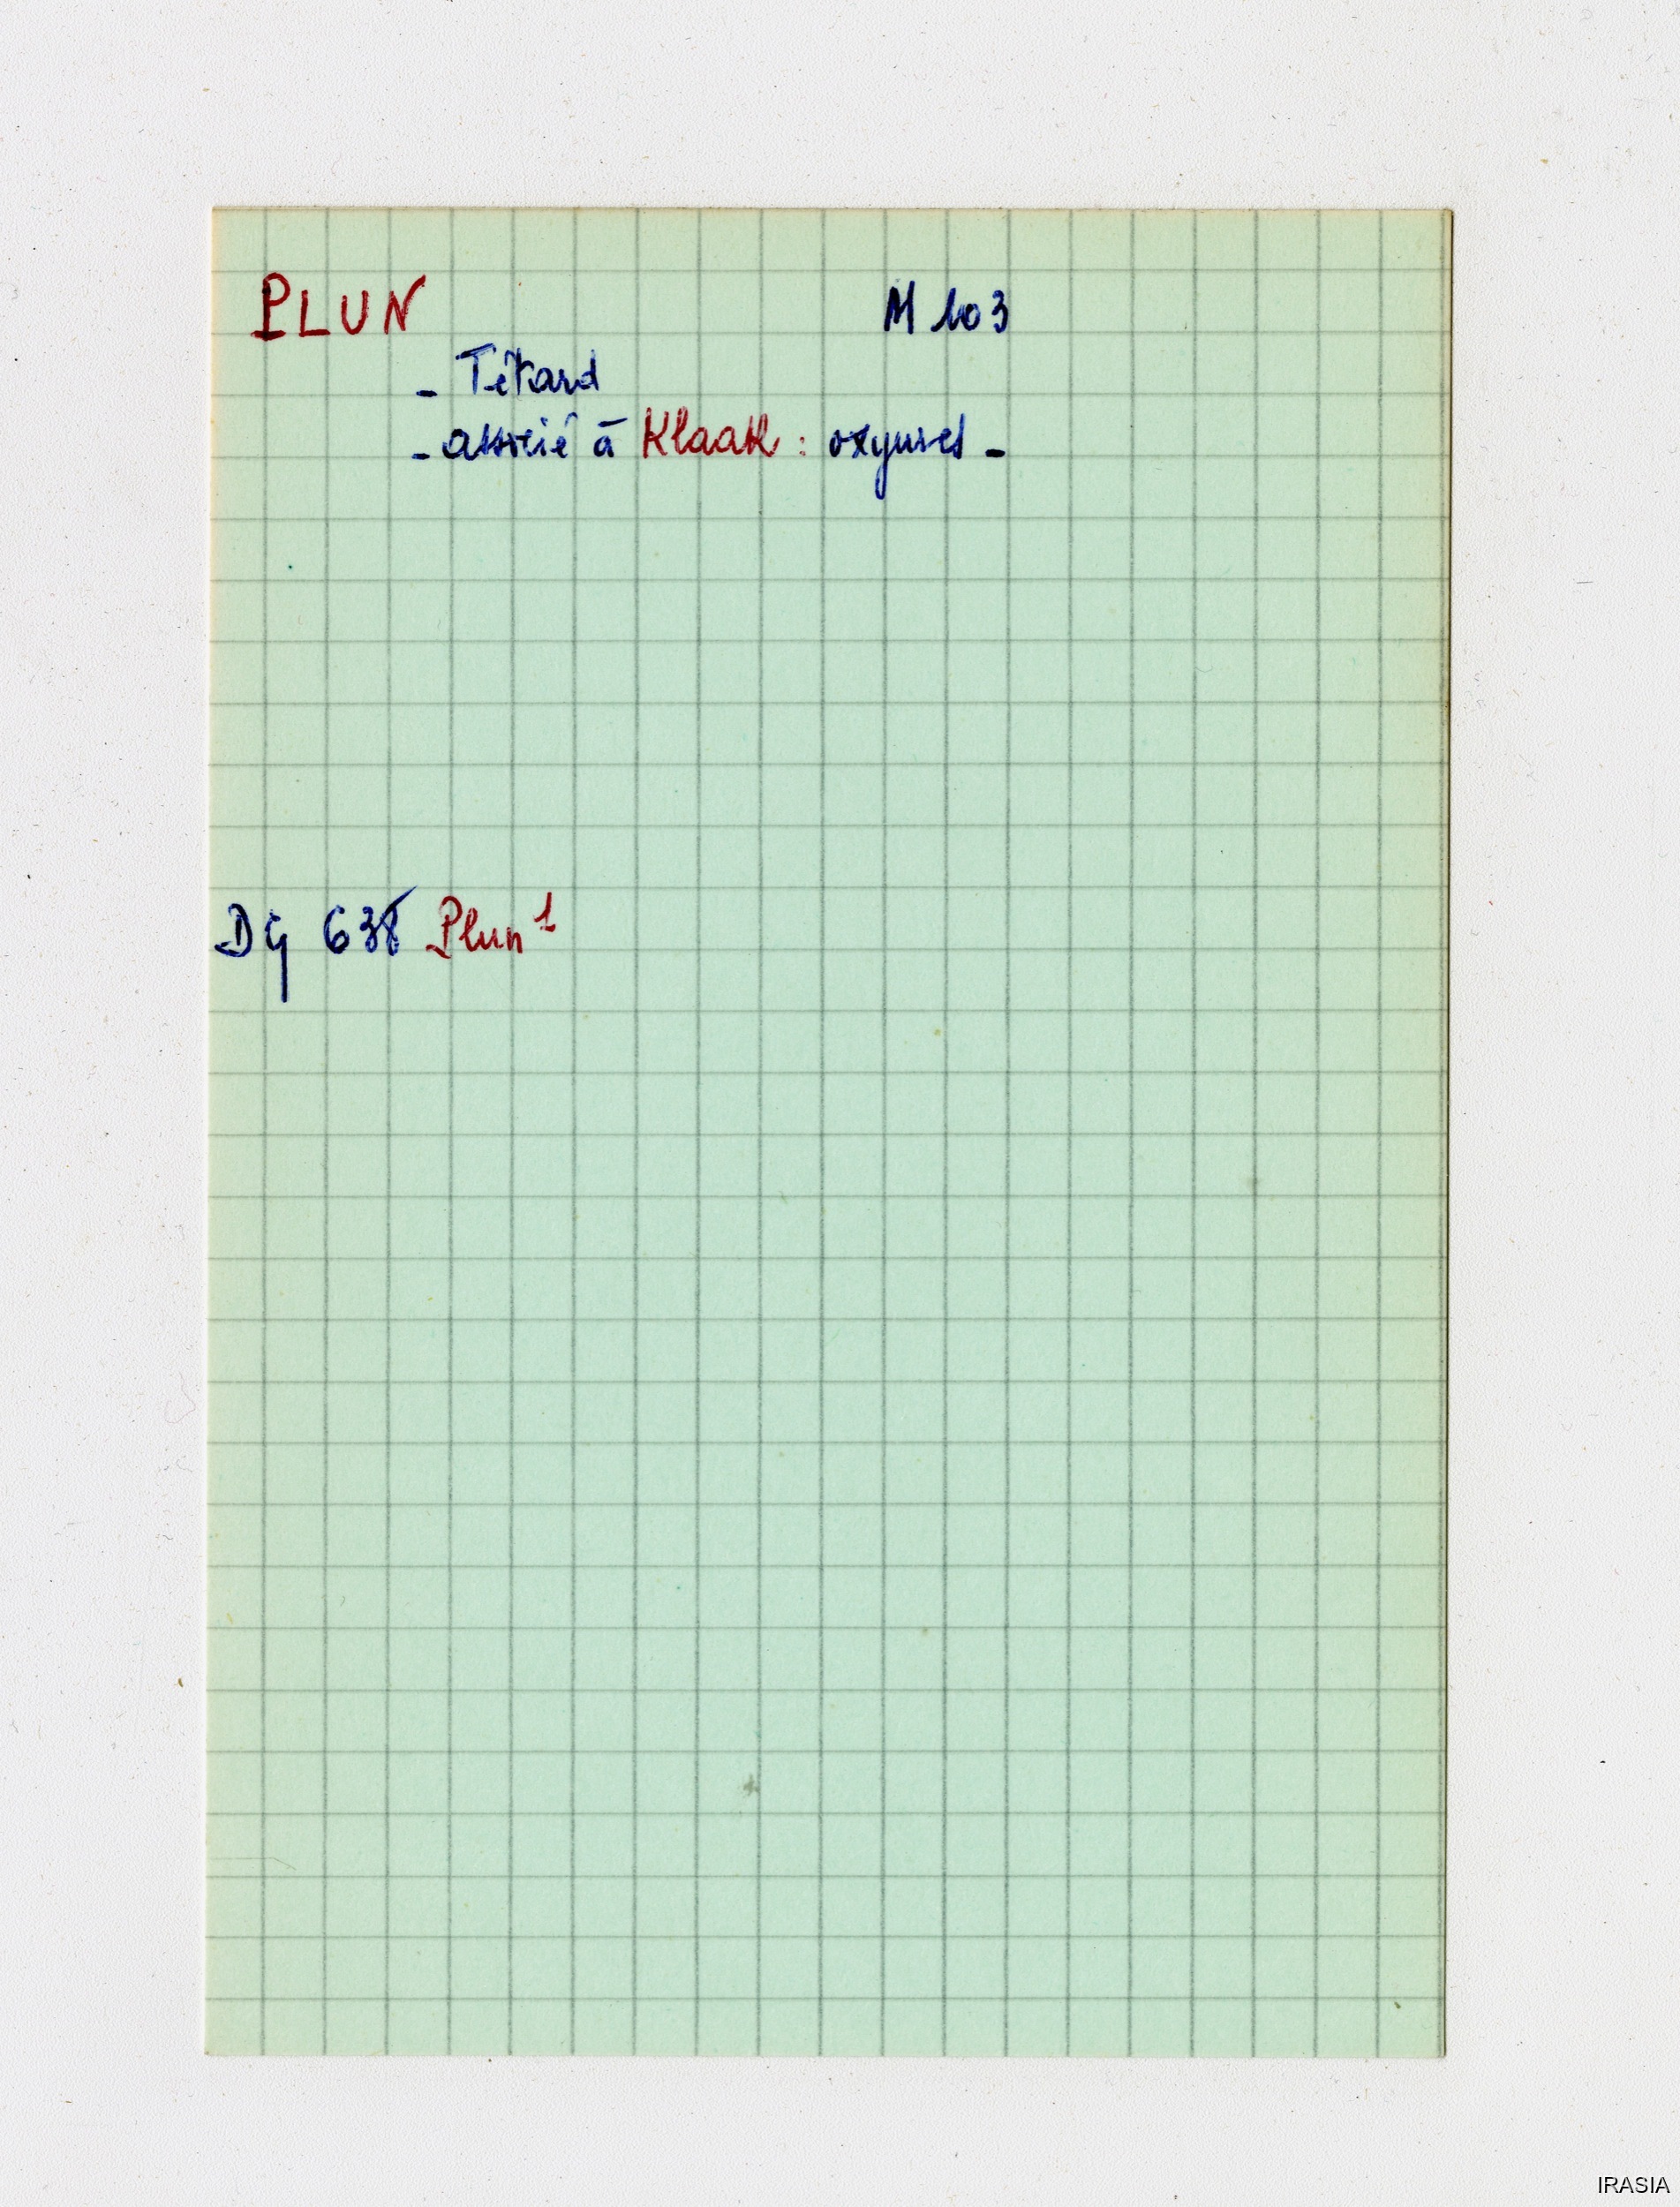 PLUN M 103
- Têtard
- associé à Klaak : oxyures -
DG 638 Plun¹
IRASIA